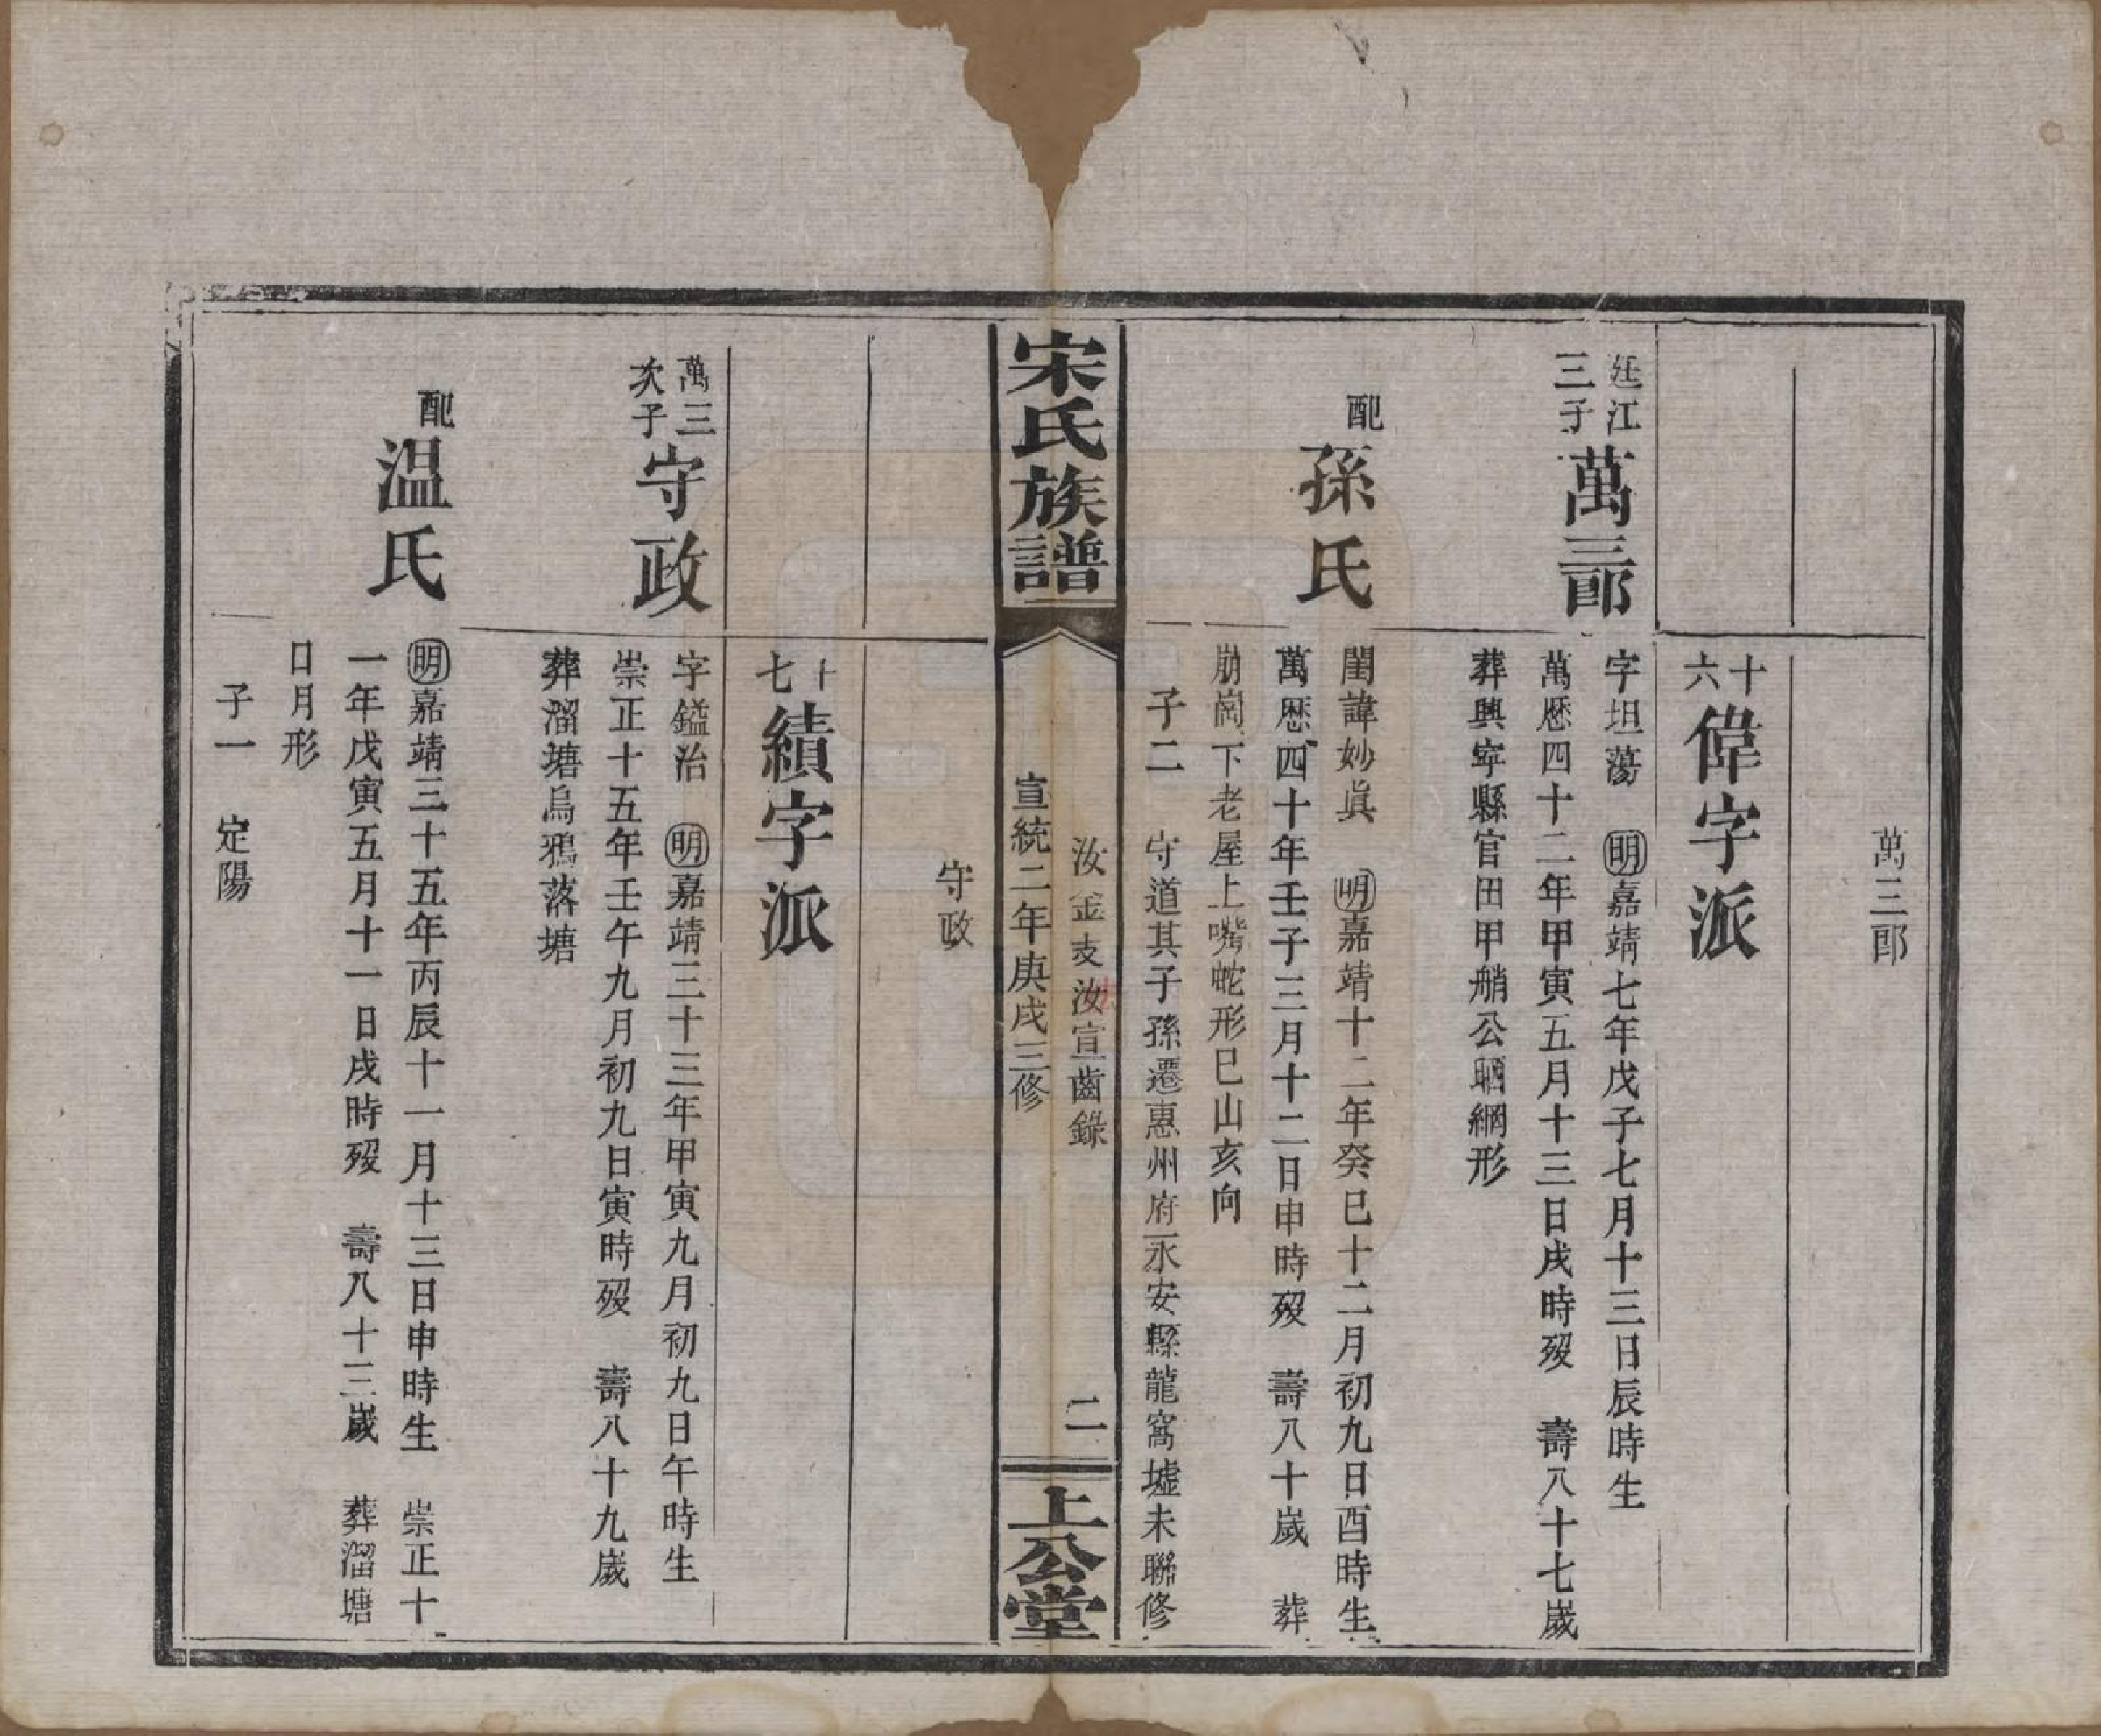 萬三郎
十六偉字派
廷江三子 萬三郎
字坦蕩 明嘉靖七年戊子七月十三日辰時生
萬歷四十二年甲寅五月十三日戌時歿 壽八十七歲
葬興寧縣官田甲艄公晒網形
配孫氏
閨諱妙眞 明嘉靖十二年癸巳十二月初九日酉時生
萬歷四十年壬子三月十二日申時歿 壽八十歲 葬
崩崗下老屋上嘴蛇形巳山亥向
子二 守道其子孫遷惠州府永安縣龍窩墟未聯修
宋氏族譜
汝金支汝宣齒錄
宣統二年庚戌三修
二
上公堂
守政
十七績字派
萬三次子 守政
字鎰治 明嘉靖三十三年甲寅九月初九日午時生
崇正十五年壬午九月初九日寅時歿 壽八十九歲
葬溜塘烏鴉落塘
配溫氏
明嘉靖三十五年丙辰十一月十三日申時生 崇正十
一年戊寅五月十一日戌時歿 壽八十三歲 葬溜塘
日月形
子一 定陽